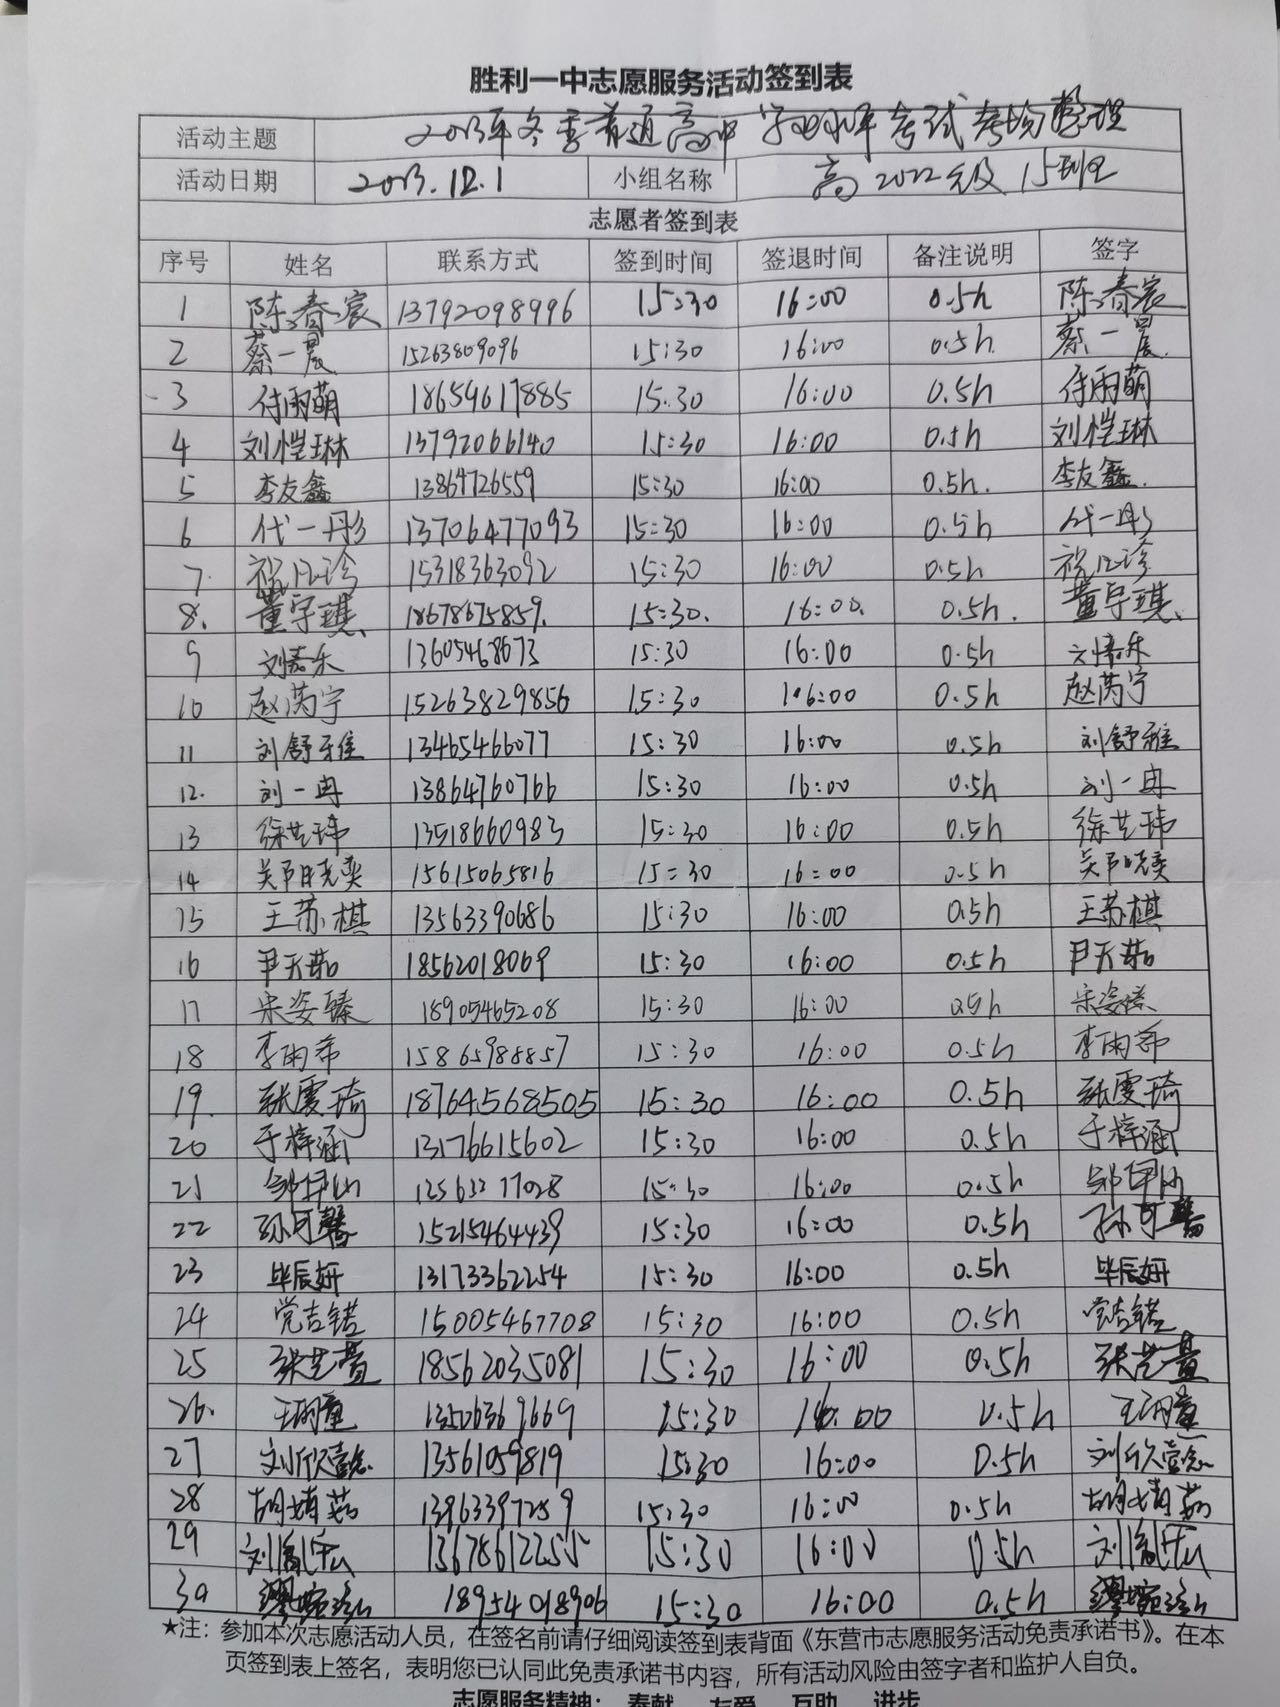 胜利一中志愿服务活动签到表
活动主题 2023年冬季普通高中学业水平考试考场整理
活动日期 2023.12.1 小组名称 高2022级15班
志愿者签到表
序号 姓名 联系方式 签到时间 签退时间 备注说明 签字
1 陈春宸 13792098996 15:30 16:00 0.5h 陈春宸
2 蔡一晨 15263809096 15:30 16:00 0.5h. 蔡一晨
3 付雨萌 18659617885 15:30 16:00 0.5h 付雨萌
4 刘恺琳 13792066140 15:30 16:00 0.5h 刘恺琳
5 李友鑫 13864726559 15:30 16:00 0.5h. 李友鑫
6 代一彤 13706477093 15:30 16:00 0.5h 代一彤
7. 祝凡珍 15318363092 15:30 16:00 0.5h 祝凡珍
8. 董宇琪 18678675859. 15:30. 16:00. 0.5h. 董宇琪
9 刘嘉乐 13605468673 15:30 16:00 0.5h 刘嘉乐
10 赵芮宁 15263829856 15:30 16:00 0.5h 赵芮宁
11 刘舒雅 13465466077 15:30 16:00 0.5h 刘舒雅
12. 刘一冉 13864760766 15:30 16:00 0.5h 刘一冉
13 徐艺玮 13518660983 15:30 16:00 0.5h 徐艺玮
14 15615065816 15:30 16:00 0.5h
15 王苏棋 13563390686 15:30 16:00 0.5h 王苏棋
16 尹天茹 18562018069 15:30 16:00 0.5h 尹天茹
17 宋姿臻 18905465208 15:30 16:00 0.5h 宋姿臻
18 李雨希 15865988857 15:30 16:00 0.5h 李雨希
19. 张雯琦 18764568505 15:30 16:00 0.5h 张雯琦
20 于梓涵 13176615602 15:30 16:00 0.5h 于梓涵
21 15:30 16:00 0.5h
22 孙可馨 15215464439 15:30 16:00 0.5h 孙可馨
23 毕辰妍 13173362254 15:30 16:00 0.5h 毕辰妍
24 党吉锘 15005467708 15:30 16:00 0.5h 党吉锘
25 张艺萱 18562035081 15:30 16:00 0.5h 张艺萱
26. 王玥童 13506369669 15:30 16:00 0.5h 王玥童
27 刘欣 13561059819 15:30 16:00 0.5h 刘欣
28 胡婧茹 13963397259 15:30 16:00 0.5h 胡婧茹
29 刘 15:30 16:00 0.5h 刘
30 18954018906 15:30 16:00 0.5h
★注：参加本次志愿活动人员，在签名前请仔细阅读签到表背面《东营市志愿服务活动免责承诺书》。在本
页签到表上签名，表明您已认同此免责承诺书内容，所有活动风险由签字者和监护人自负。
志愿服务精神：奉献 友爱 互助 进步